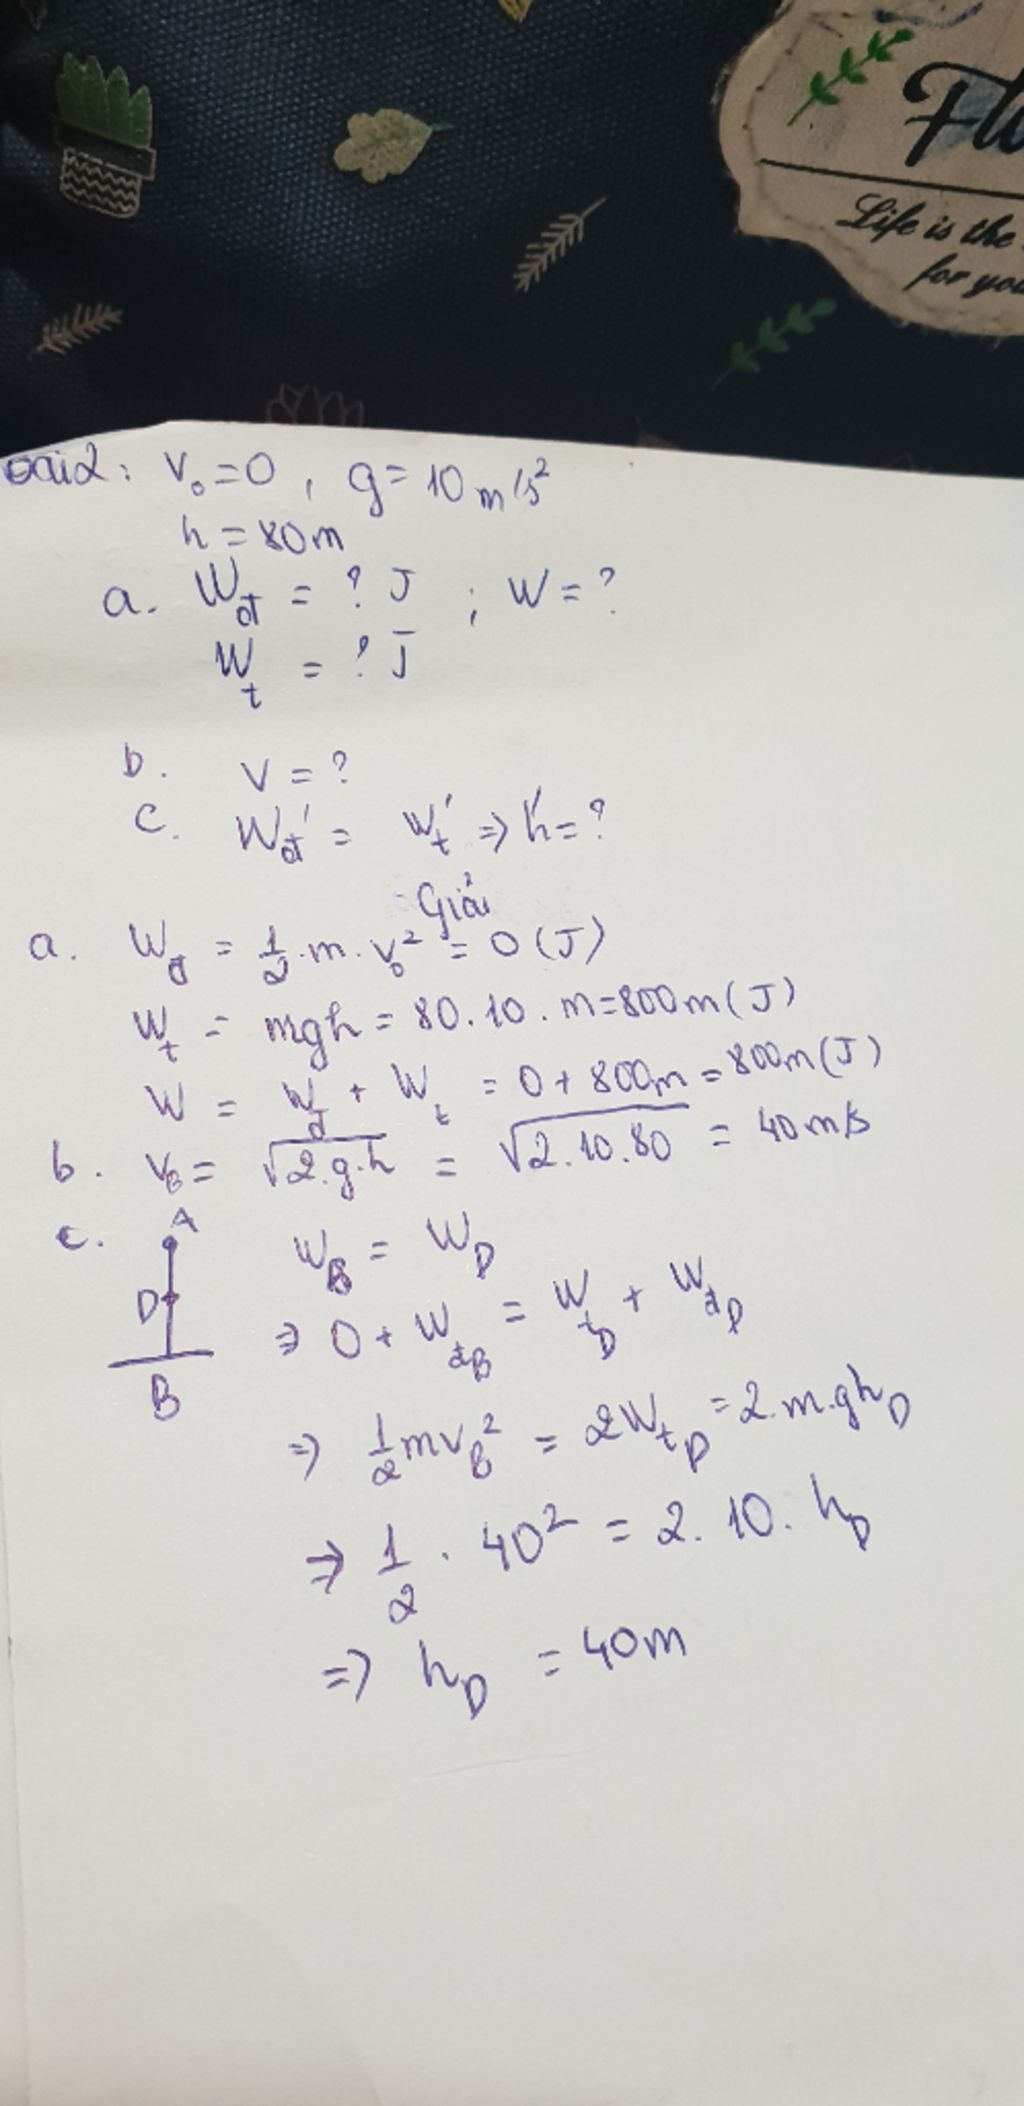 Flo
Life is the
for you
Bài 2: v₀ = 0 , g = 10 m/s²
h = 80m
a. Wđ = ? J ; W = ?
Wt = ? J
b. v = ?
c. Wđ' = Wt' => h' = ?
Giải
a. Wđ = 1/2 . m . v₀² = 0 (J)
Wt = mgh = 80.10.m = 800m (J)
W = Wđ + Wt = 0 + 800m = 800m (J)
b. vB = √2.g.h = √2.10.80 = 40 m/s
c. A
D
B
WB = WD
=> 0 + WđB = WtD + WđD
=> 1/2 mvB² = 2WtD = 2.m.ghD
=> 1/2 . 40² = 2. 10. hD
=> hD = 40m